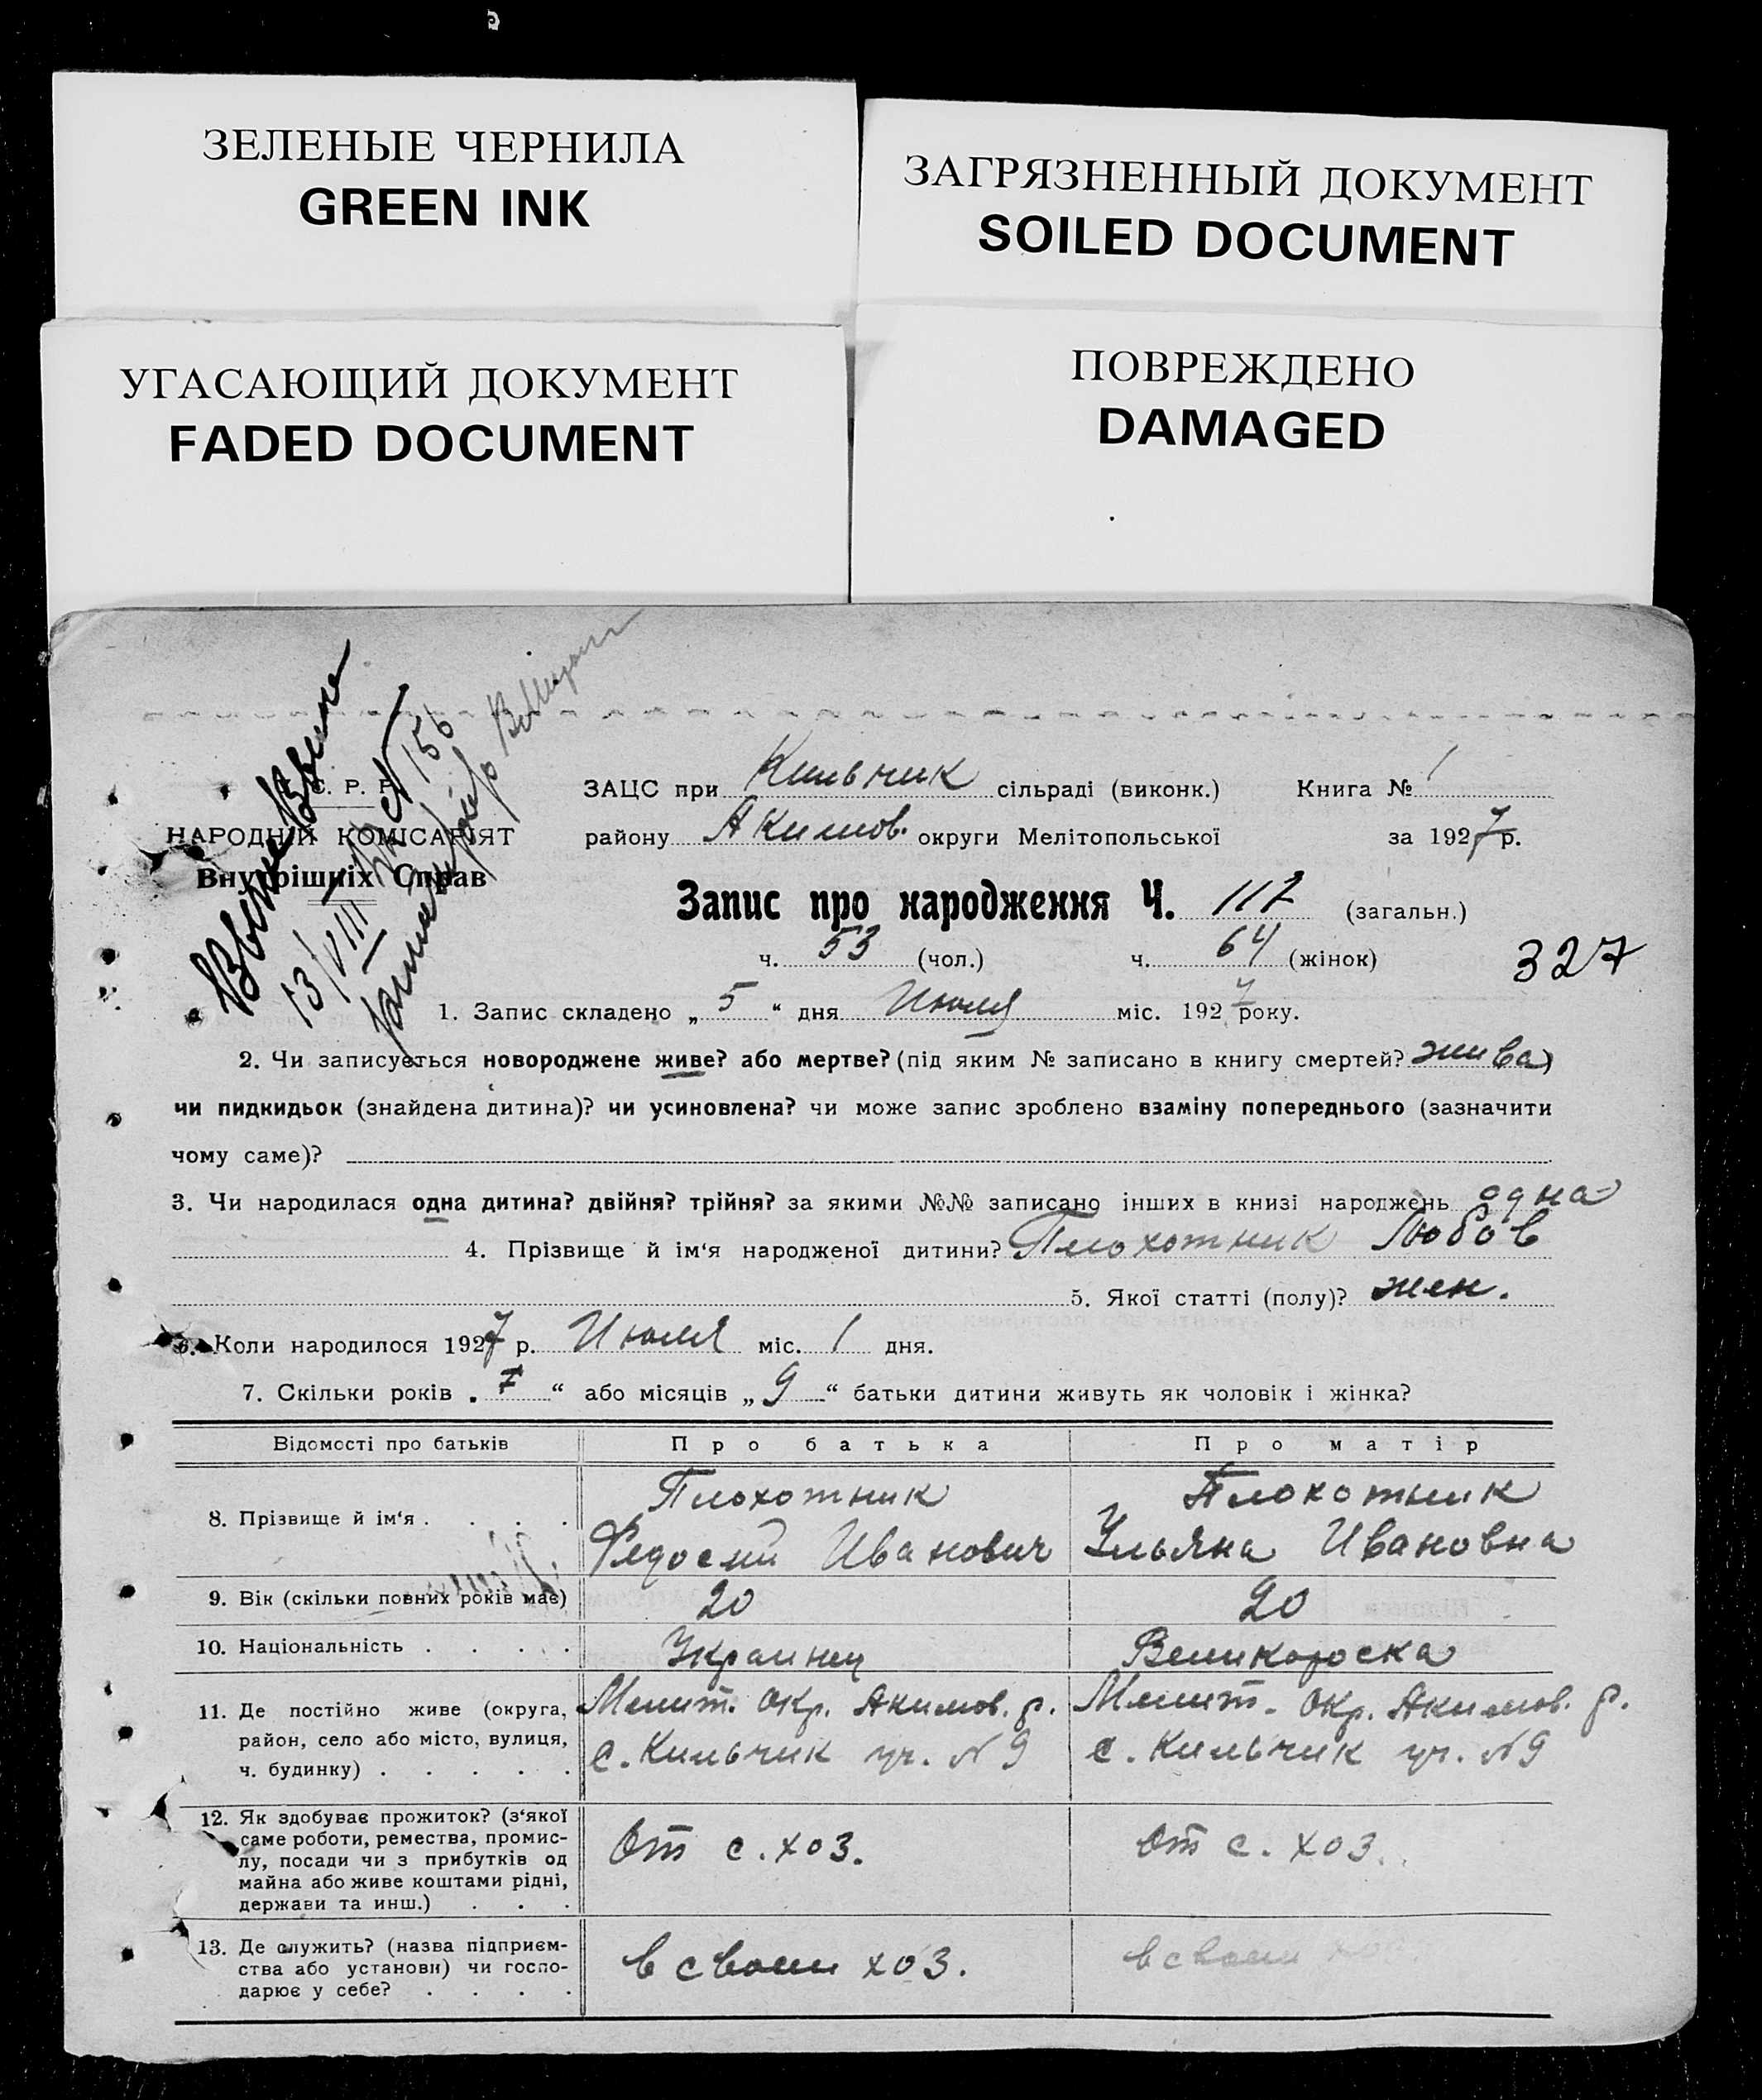 ЗЕЛЕНЫЕ ЧЕРНИЛА
GREEN INK
ЗАГРЯЗНЕННЫЙ ДОКУМЕНТ
SOILED DOCUMENT
УГАСАЮЩИЙ ДОКУМЕНТ
FADED DOCUMENT
ПОВРЕЖДЕНО
DAMAGED
С. Р. Р.
НАРОДНІЙ КОМІСАРІЯТ
Внутрішніх Справ
13/VIII № 156
ЗАЦС при Кильчик сільраді (виконк.) Книга № 1
району Акимов. округи Мелітопольської за 1927 р.
Запис про народження Ч. 117 (загальн.)
ч. 53 (чол.) ч. 64 (жінок)
327
1. Запис складено „ 5 “ дня Июля міс. 1927 року.
2. Чи записується новороджене живе? або мертве? (під яким № записано в книгу смертей? жива)
чи пидкидьок (знайдена дитина)? чи усиновлена? чи може запис зроблено взаміну попереднього (зазначити
чому саме)?
3. Чи народилася одна дитина? двійня? трійня? за якими №№ записано інших в книзі народжень одна
4. Прізвище й ім‘я народженої дитини? Плохотник Любов
5. Якої статті (полу)? жен.
6. Коли народилося 1927 р. Июля міс. 1 дня.
7. Скільки років „ “ або місяців „ 9 “ батьки дитини живуть як чоловік і жінка?
Відомості про батьків Про батька Про матір
8. Прізвище й ім‘я . . . . Плохотник Плохотник
Иванович Ульяна Ивановна
9. Вік (скільки повних років має) 20 20
10. Національність . . . . Украинец Великороска
11. Де постійно живе (округа,
район, село або місто, вулиця,
ч. будинку) . . . . .
Мелит. окр. Акимов. р.
с. Кильчик уч. №9
Мелит. окр. Акимов. р.
с. Кильчик уч. №9
12. Як здобуває прожиток? (з‘якої
саме роботи, ремества, промис-
лу, посади чи з прибутків од
майна або живе коштами рідні,
держави та инш.) . . .
От с. хоз.
От с. хоз.
13. Де служить? (назва підприєм-
ства або установи) чи госпо-
дарює у себе? . . . .
в своем хоз.
в своем хоз